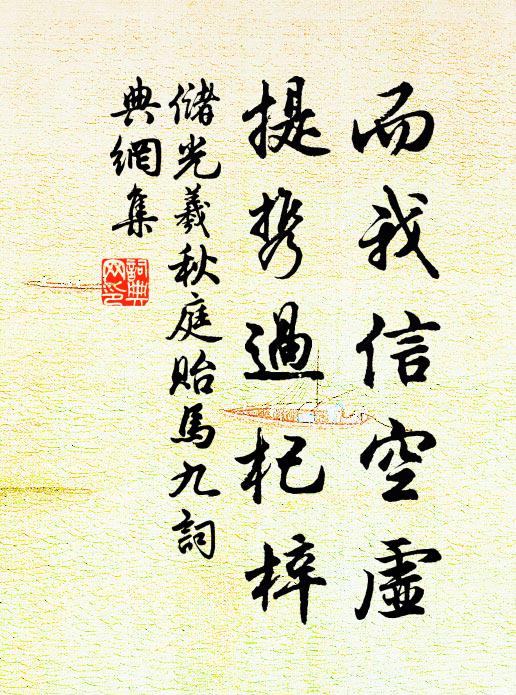 而我信空虛
提携過杞梓
儲光羲秋庭貽馬九詞
典網集
詞典网印